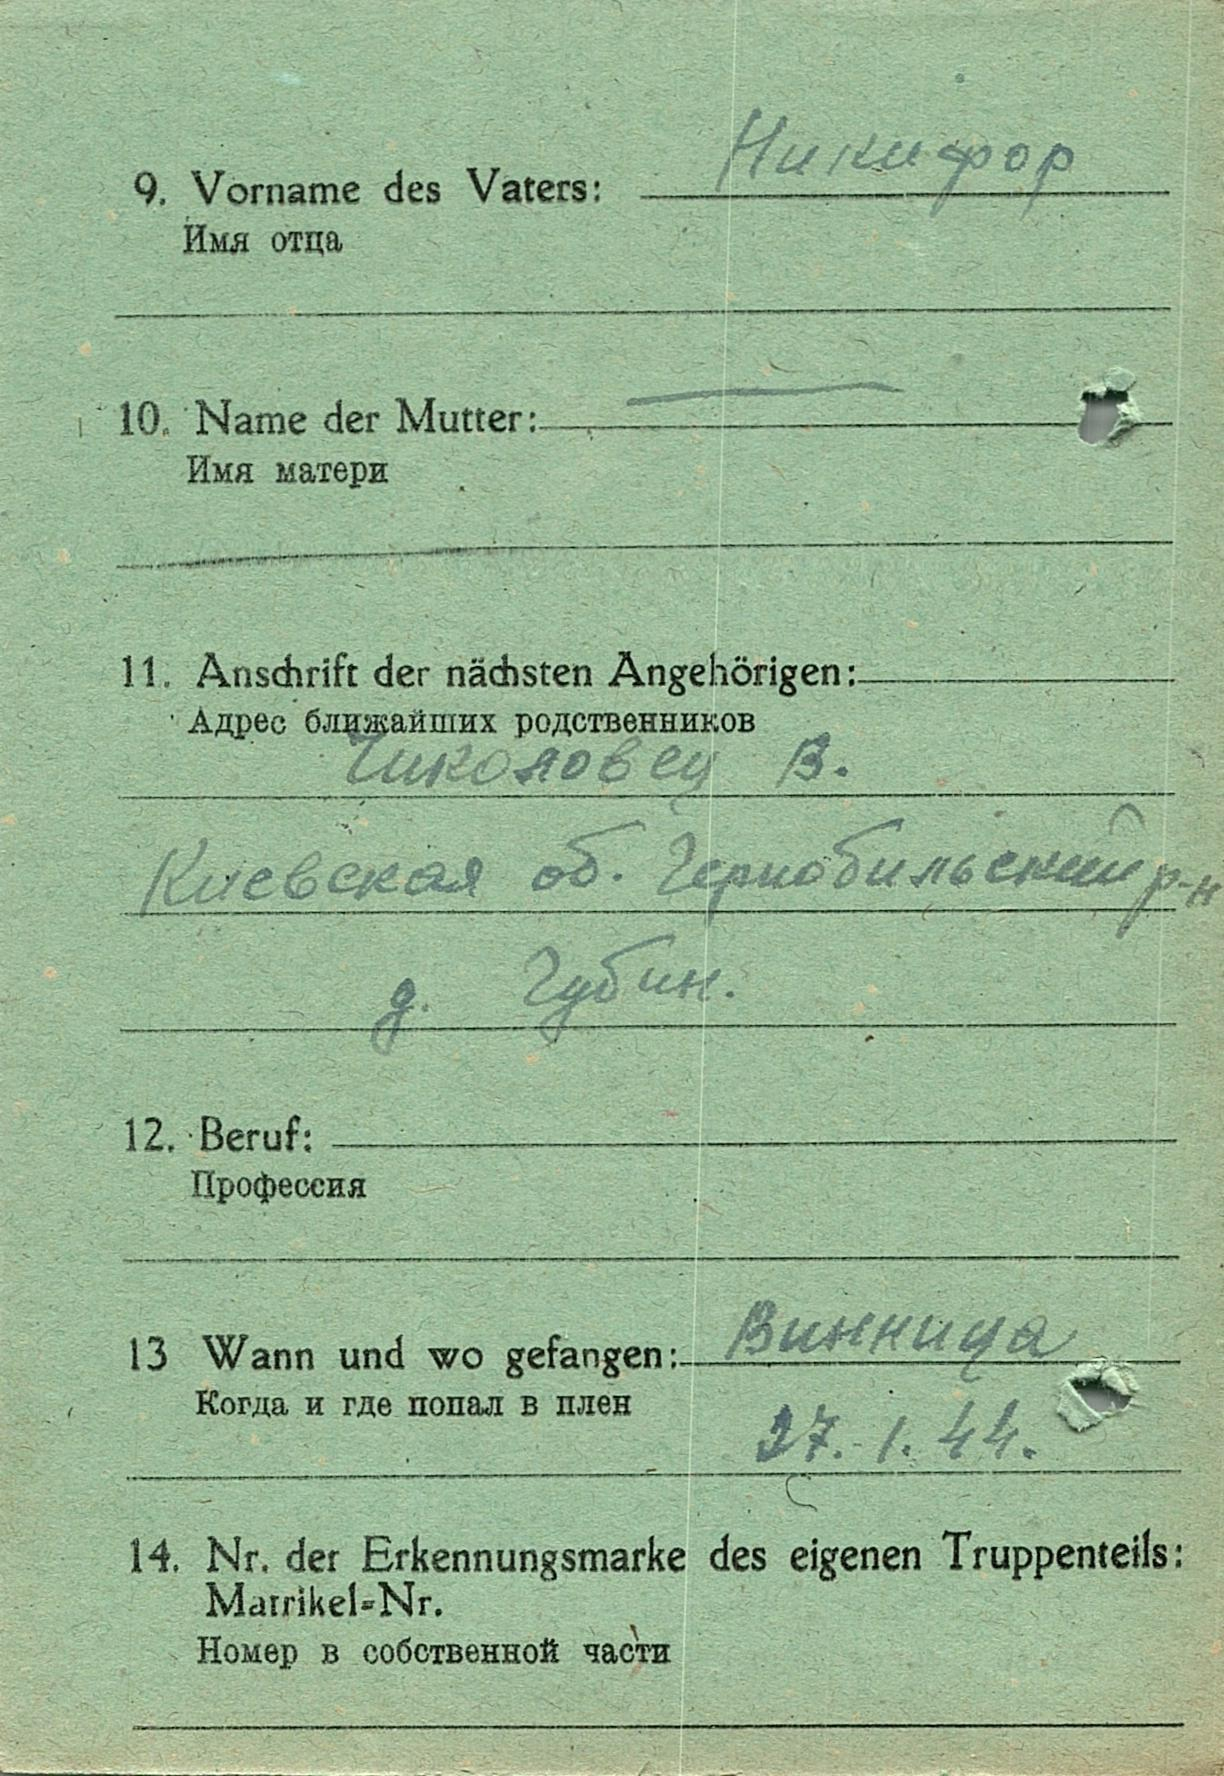 Никифор
9. Vorname des Vaters:
Имя отца
10. Name der Mutter:
Имя матери
11. Anschrift der nächsten Angehörigen:
Адрес ближайших родственников
Чиколовец В.
Киевская об. Чернобильский р-н
д. Губин.
12. Beruf:
Профессия
13 Wann und wo gefangen: Винница
Когда и где попал в плен
27.1.44.
14. Nr. der Erkennungsmarke des eigenen Truppenteils:
Matrikel-Nr.
Номер в собственной части